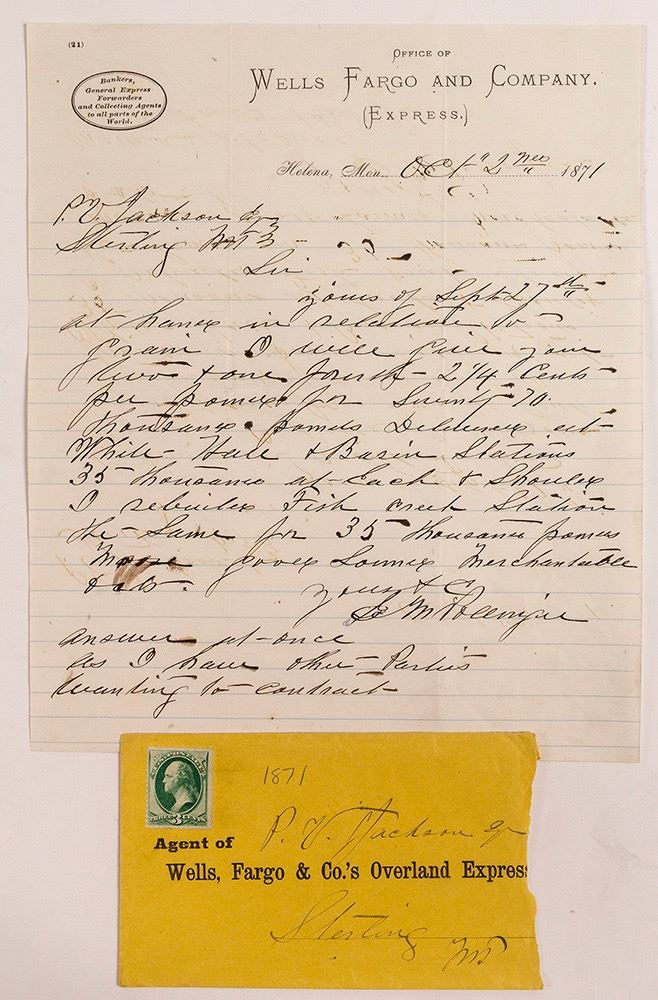 (21)
OFFICE OF
WELLS FARGO AND COMPANY.
(EXPRESS.)
Bankers,
General Express
Forwarders
and Collecting Agents
to all parts of the
World.
Helena, Mon. Oct 2 1871
P. V. Jackson Eqr
Sterling
Sir
yours of Sept 27th
at hand in relation to
grain I will give you
two & one fourth 2 1/4 Cents
per pound for Seventy 70
thousand pounds Delivered at
White Hall & Basin Stations
35 thousand at Each & Should
I rebuild Fish creek Station
the Same for 35 thousand pounds
more good Sound Merchantable
oats. yours & C
answer at once
as I have other Parties
wanting to contract
1871
P. V. Jackson Eqr
Agent of
Wells, Fargo & Co.'s Overland Express
Sterling
MT